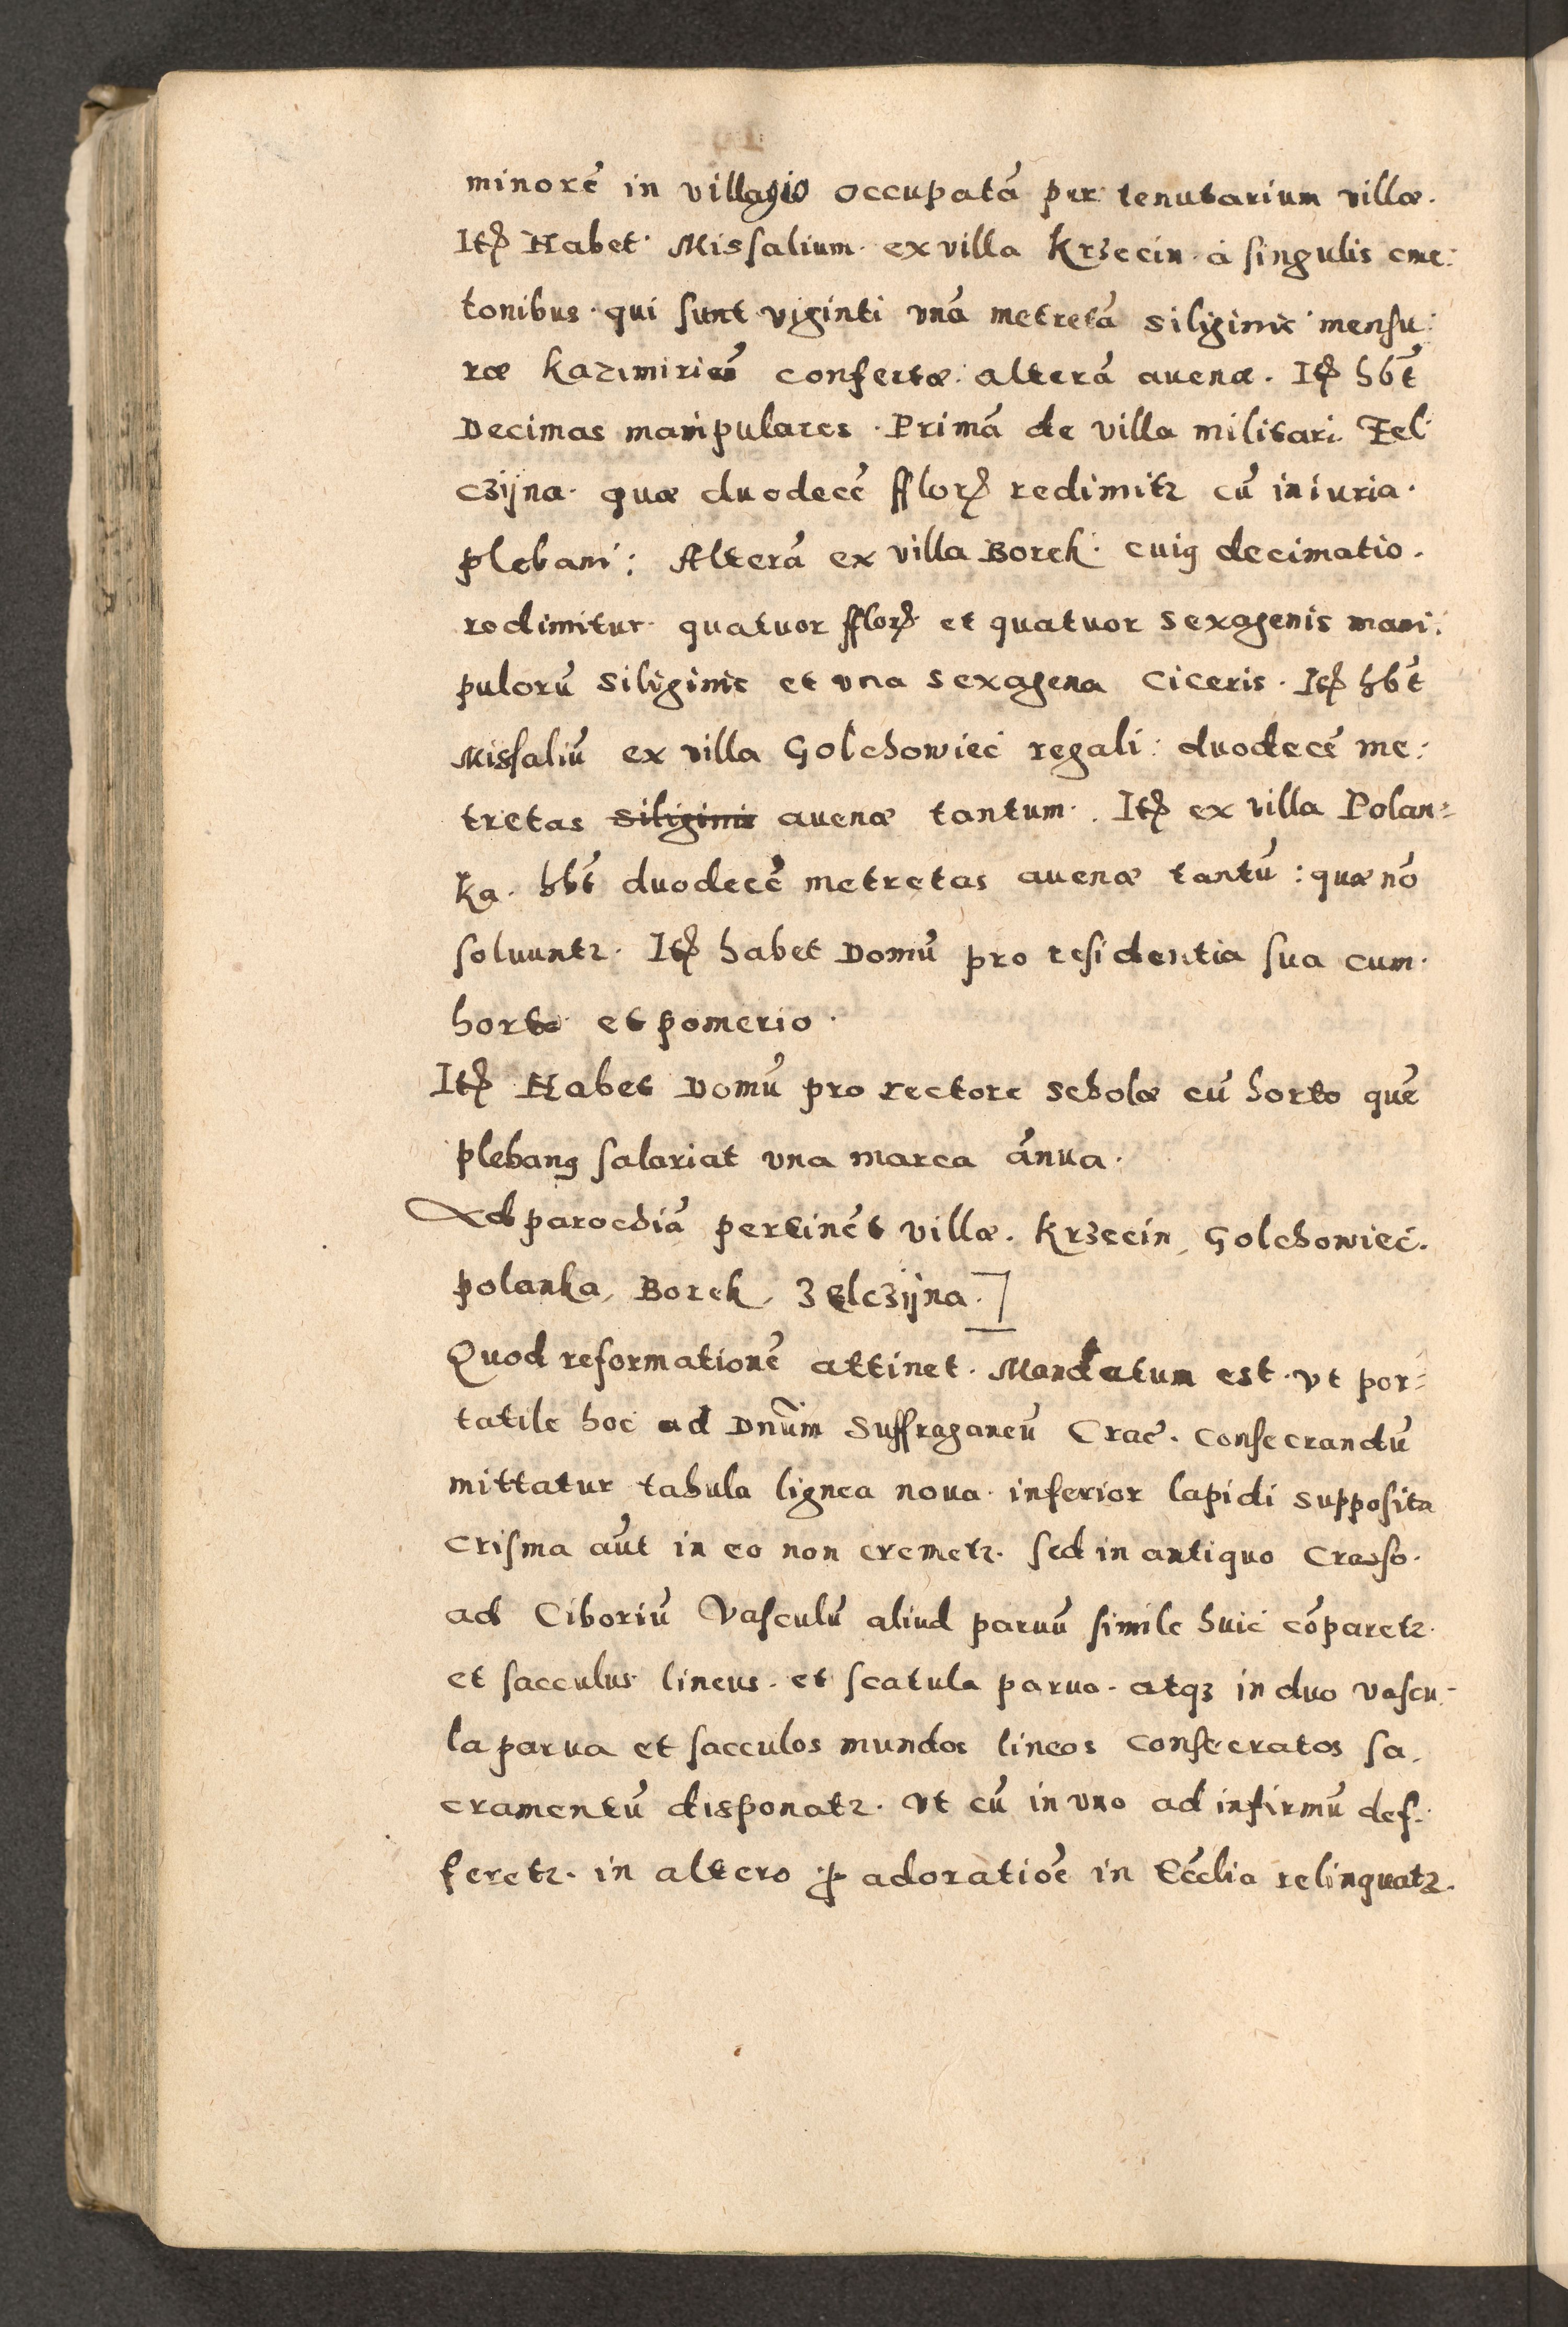 minorē in villagio occupatā per tenutarium villæ.
Itp̄ Habet Missalium ex villa Krzecin à singulis cme:
tonibus qui sunt viginti vnā metretā siliginis mensu:
ræ kazimirien̄ confertæ alterā auenæ. Itp̄ hb̄t
Decimas manipulares. Primā de villa militari Zel
czijna quæ duodecē fflorƺ redimitꝛ cū iniuria.
plebani: Alterā ex villa Borek cuiꝰ decimatio.
redimitur quatuor fflorƺ et quatuor sexagenis mani:
pulorū siliginis et vna sexagena ciceris. Itp̄ hb̄t
Missaliū ex villa Golchowiec regali: duodecē me:
tretas siliginis auenæ tantum. Itp̄ ex villa Polan=
ka. hb̄t duodecē metretas auenæ tantū: quæ nō
soluuntꝛ. Itp̄ habet Domū pro residentia sua cum
horto et pomerio.
Itp̄ Habet Domū pro rectore scholæ cū horto quē
plebanꝰ salariat vna marca ānua.
Ad parochiā pertinēt villæ. Krzecin, Golchowiec.
polanka, Borek, Zelczijna.
Quod reformationē attinet. Mandatum est vt por=
tatile hoc ad Dnūm Suffraganeū Crac̄. consecrandū
mittatur tabula lignea noua inferior lapidi supposita
Crisma aūt in eo non cremetꝛ. sed in antiquo Craso.
ad Ciboriū Vasculū aliud paruū simile huic cōparetꝛ.
et sacculus lineus. et scatula parua. atqꝫ in duo vascu=
la parua et sacculos mundos lineos consecratos sa,
cramentū disponatꝛ. Vt cū in vno ad infirmū def:
feretꝛ. in altero ꝓ adoratiōe in Ecc̄lia relinquatꝛ.